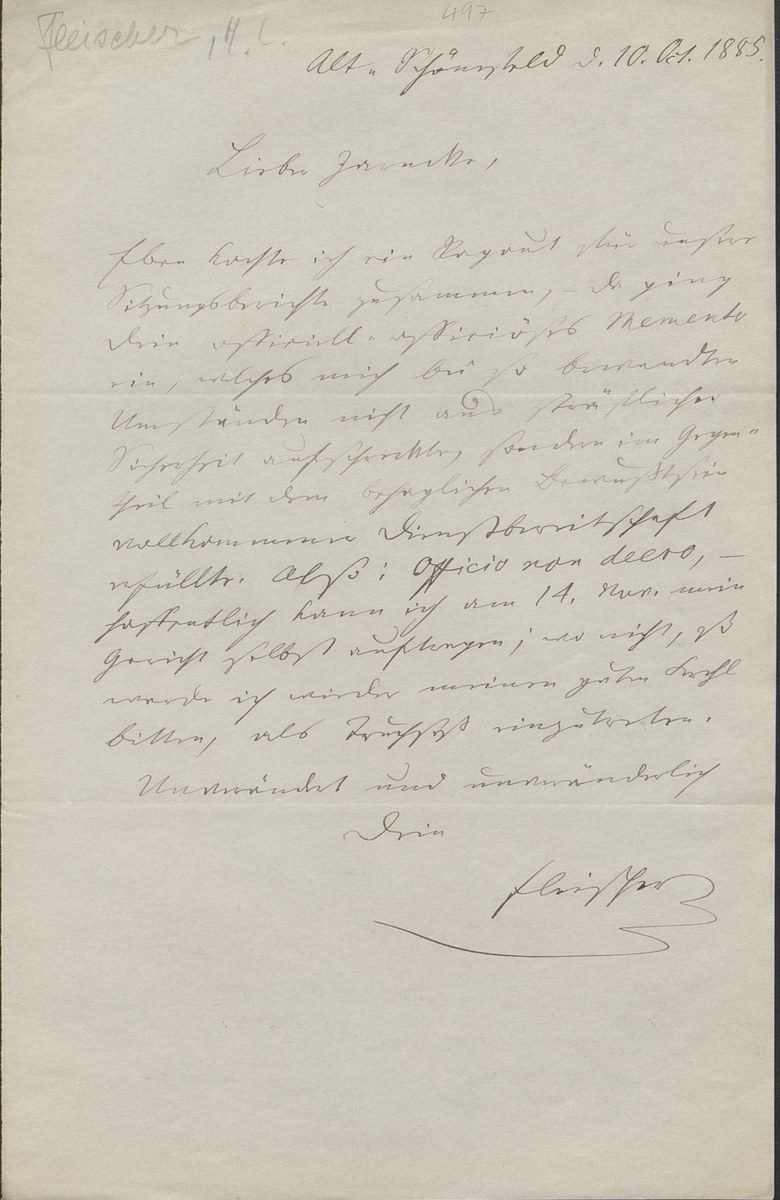 497
Fleischer, H. L.
Alt-Schönefeld d. 10. Oct. 1885.
Lieber Zarncke,
Eben kochte ich ein Ragout für unsere
Sitzungsberichte zusammen, – da ging
Dein officiell-officiöses Memento
ein, welches mich bei so bewandten
Umständen nicht aus sträflicher
Sicherheit aufschreckte, sondern im Gegen-
theil mit dem behaglichen Bewußtsein
vollkommener Dienstbereitschaft
erfüllte. Also: Officio non deero, –
hoffentlich kann ich am 14. Nov. mein
Gericht selbst auftragen; wo nicht, so
werde ich wieder meinen guten Krehl
bitten, als Truchseß einzutreten.
Unverändert und unveränderlich
Dein
Fleischer